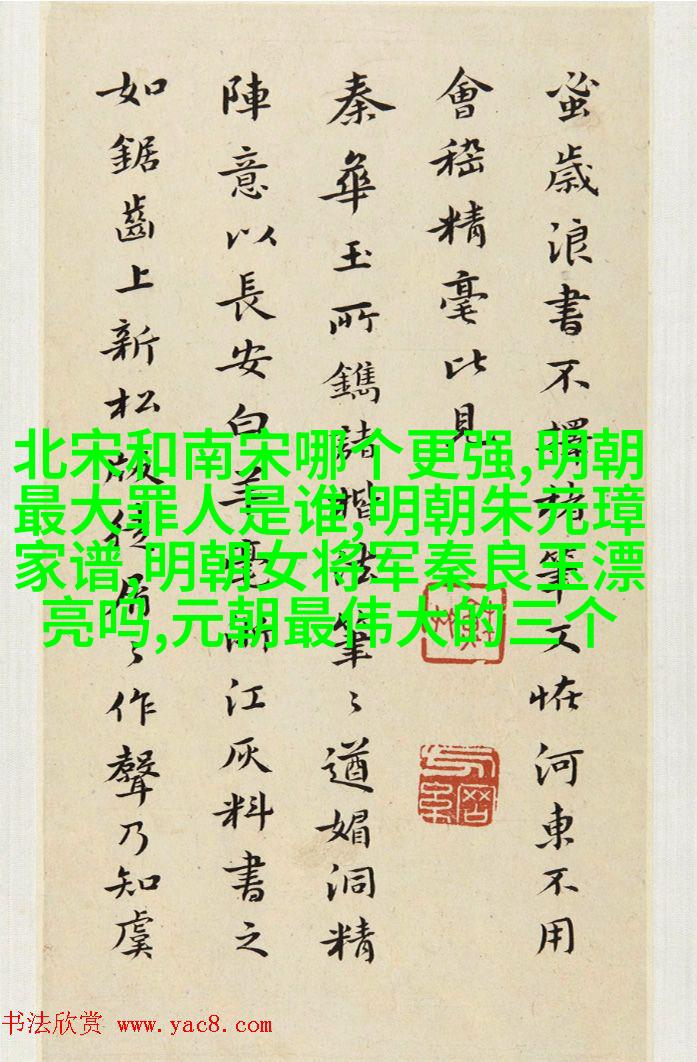 蚤歲浪書不擇諸筆又恠河東不用
會稽精毫此見
秦華玉所鐫諸楷法筆〻遒媚洞精
陣意以長安白羊毫江灰料書之
如鋸齒上新松版〻作聲乃知虞
北宋和南宋哪个更强,明朝
最大罪人是谁,明朝朱元璋
家谱,明朝女将军秦良玉漂
亮吗,元朝最伟大的三个
书法欣赏 www.yac8.com